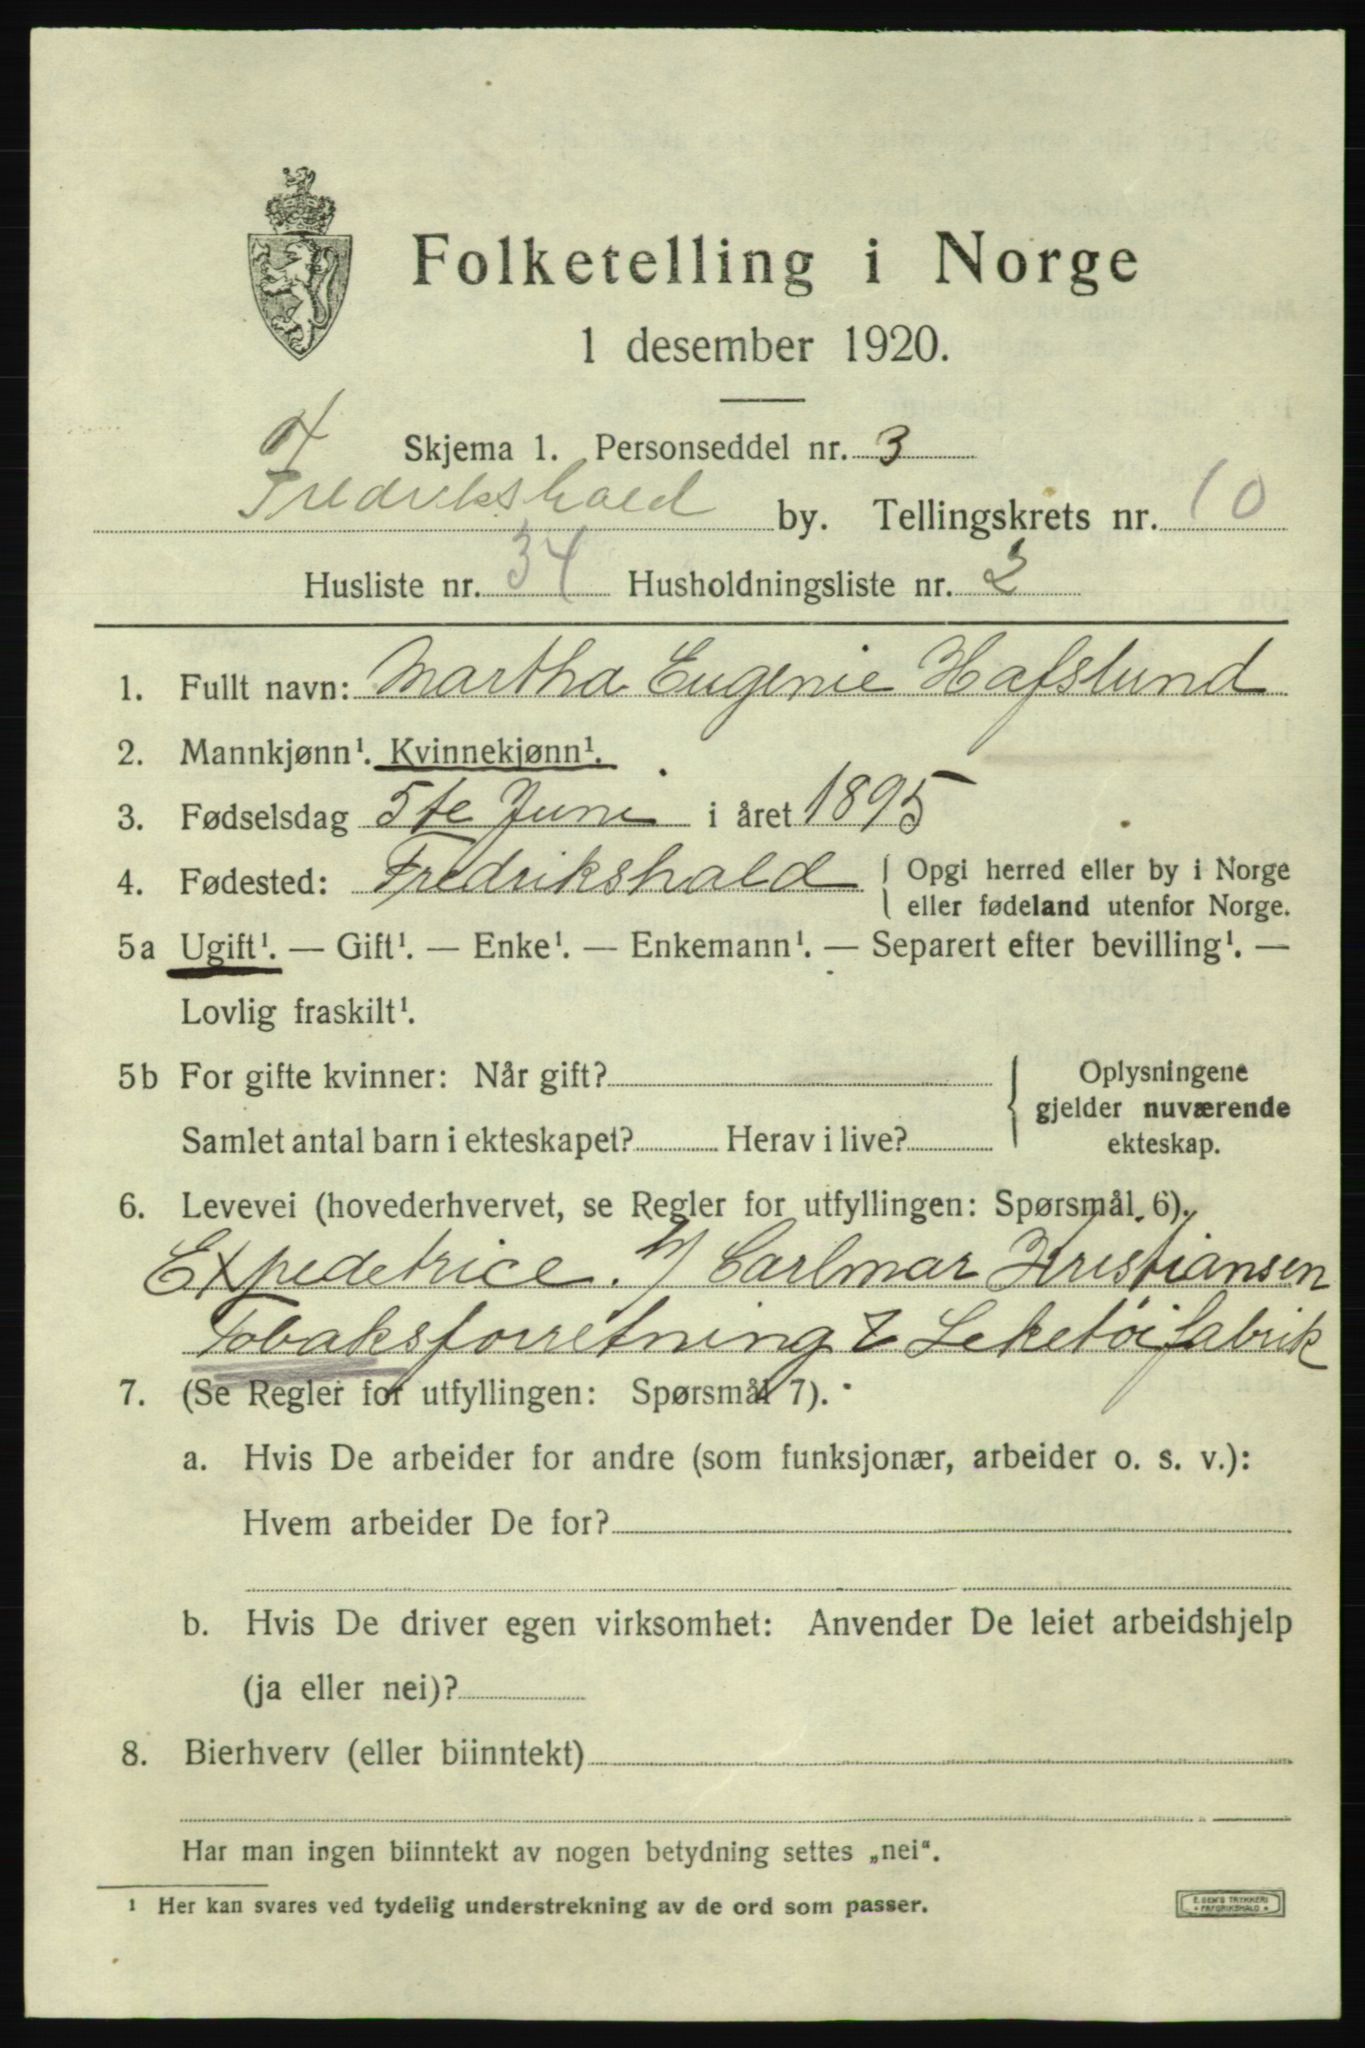 Folketelling i Norge
1 desember 1920.
Skjema 1. Personseddel nr. 3
Fredrikshald by. Tellingskrets nr. 10
Husliste nr. 34 Husholdningsliste nr. 2
1. Fullt navn: Martha Eugenie Hafslund
2. Mannkjønn¹. Kvinnekjønn¹.
3. Fødselsdag 5te Juni i året 1895
4. Fødested: Fredrikshald { Opgi herred eller by i Norge
eller fødeland utenfor Norge.
5a Ugift¹. — Gift¹. — Enke¹. — Enkemann¹. — Separert efter bevilling¹. —
Lovlig fraskilt¹.
5b For gifte kvinner: Når gift? { Oplysningene
gjelder nuværende
Samlet antal barn i ekteskapet? Herav i live? ekteskap.
6. Levevei (hovederhvervet, se Regler for utfyllingen: Spørsmål 6).
Expedetrice. h/ Carlmar Kristiansen
Tobaksforretning & Leketöifabrik
7. (Se Regler for utfyllingen: Spørsmål 7).
a. Hvis De arbeider for andre (som funksjonær, arbeider o. s. v.):
Hvem arbeider De for?
b. Hvis De driver egen virksomhet: Anvender De leiet arbeidshjelp
(ja eller nei)?
8. Bierhverv (eller biinntekt)
Har man ingen biinntekt av nogen betydning settes „nei".
¹ Her kan svares ved tydelig understrekning av de ord som passer.
E. SEM'S TRYKKERI
FREDRIKSHALD